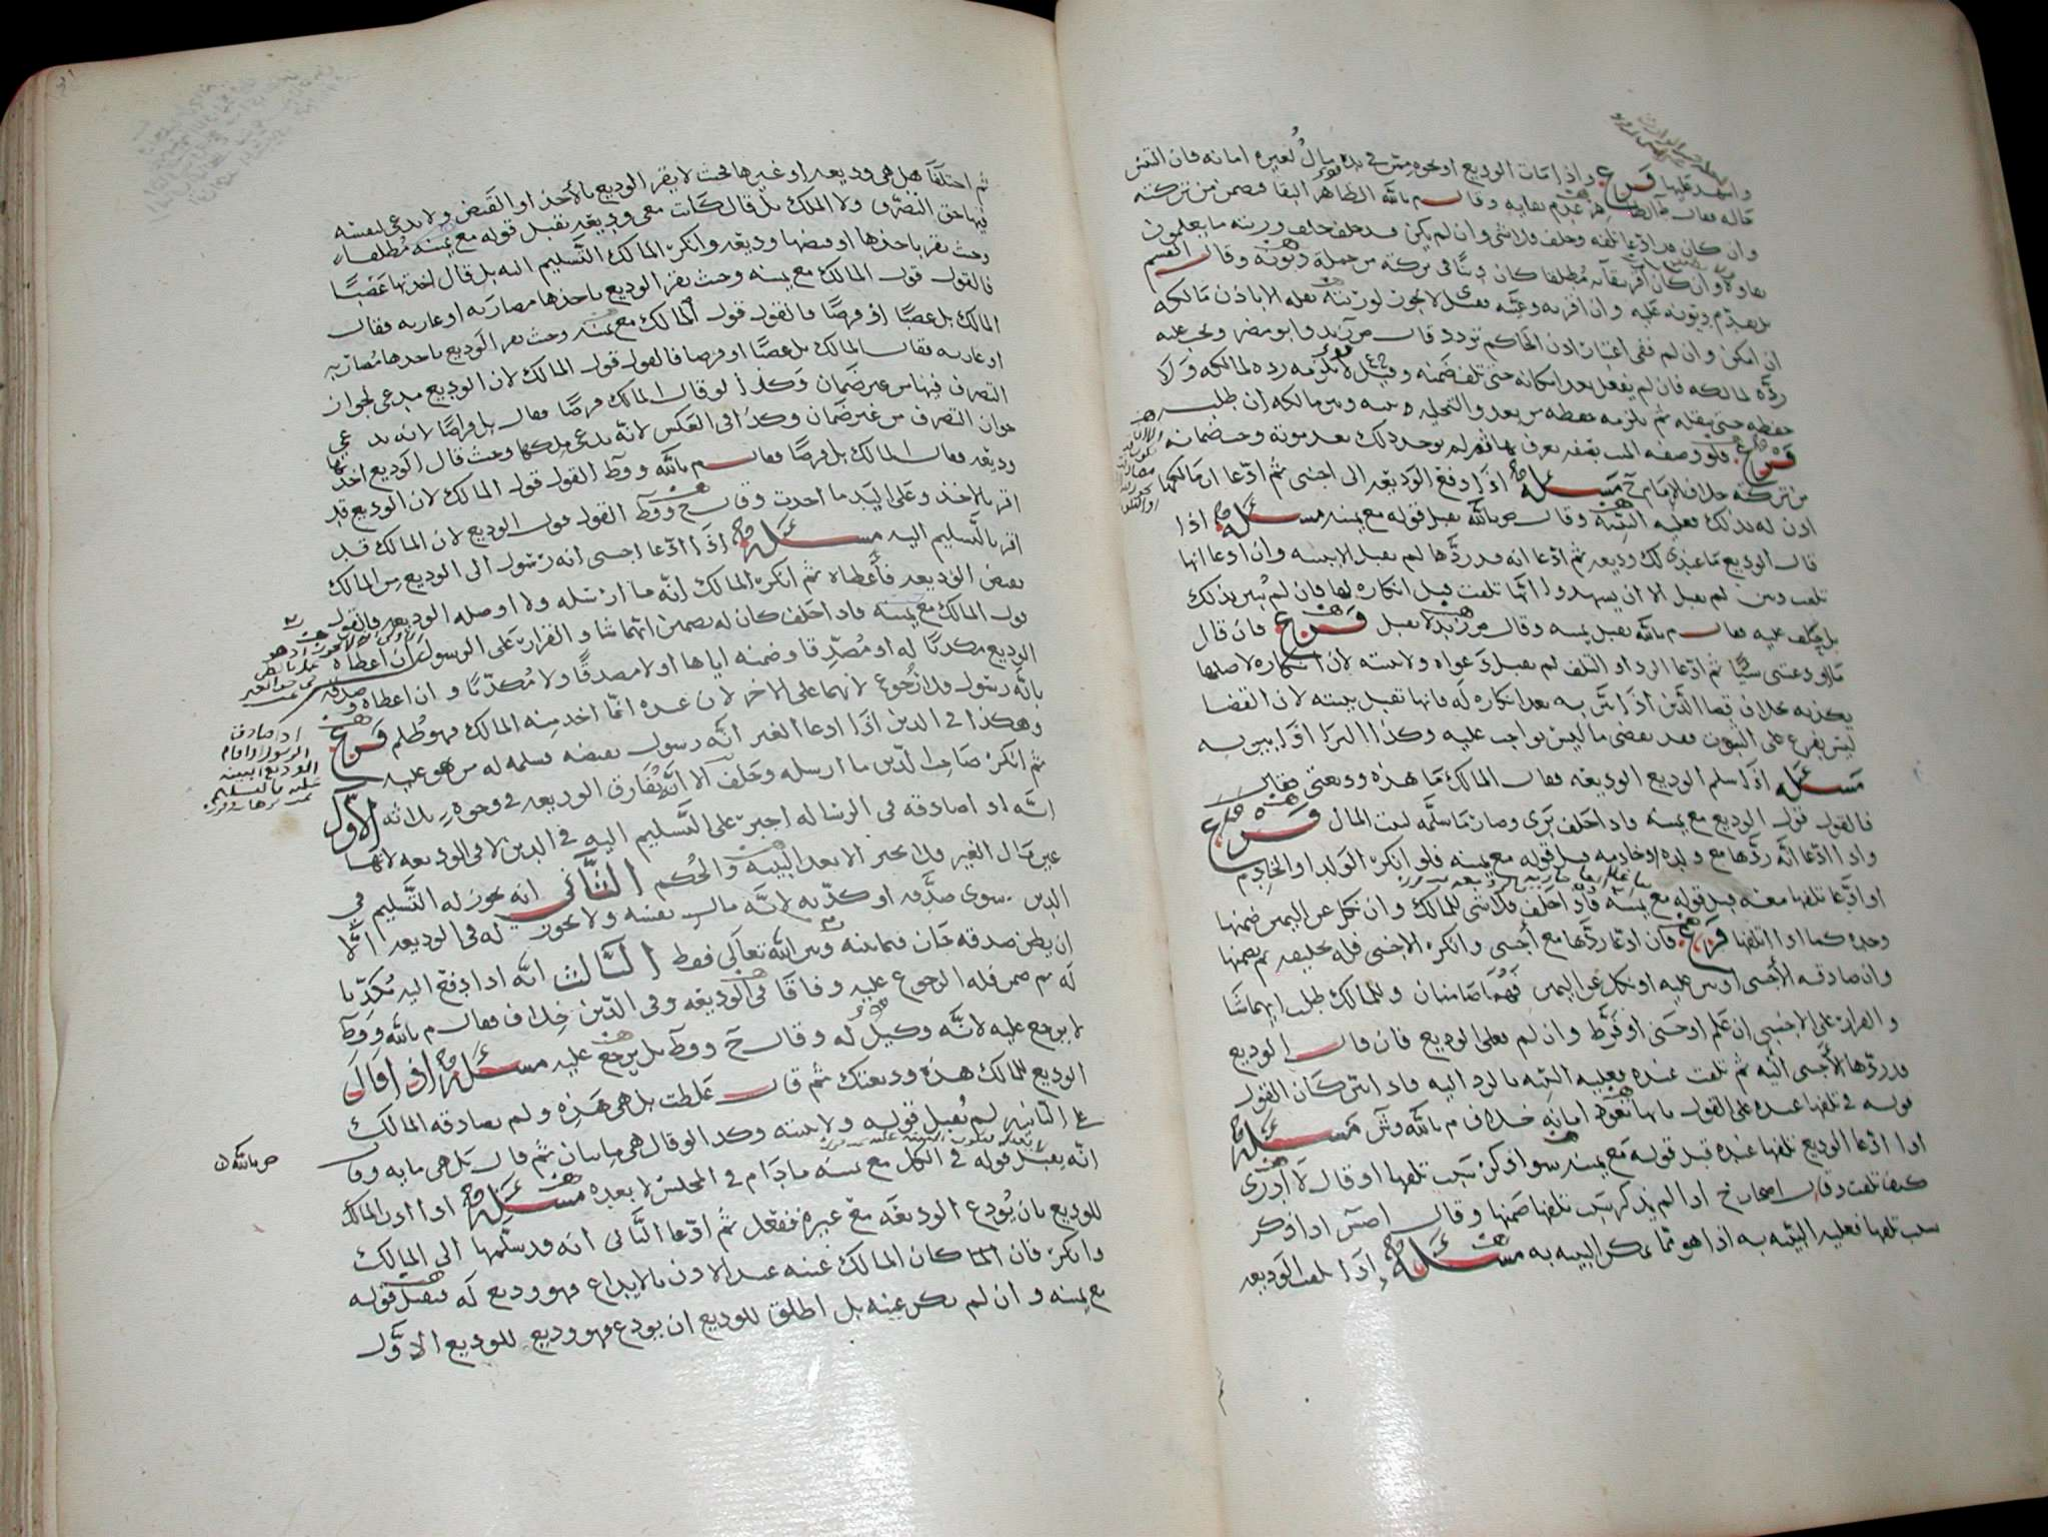 واشهد عليها فرع واذا مات الوديع او نحوه من في يده مال لغيره امانه فان
قاله فقال ط الظاهر عدم بقايه وقال م بالله الظاهر البقا فيضمن من تركته
وان كان قد ادعا تلفه وحلف فلا شي وان لم يكن قد حلف حلف ورثته ما يعلمون
بقاه وان كان اقر ببقايه مطلقا كان دينا في تركته من جملة ديونه وقال
بل يقدم ديونه عليه وان اقر به وعينه لا يجوز لورثته نقله الا باذن مالكه
ان امكن وان لم ففي اعتبار اذن الحاكم تردد قال ص زيد وابو مضر ويجب عليه
رده لمالكه فان لم يفعل بعد امكانه حتى تلف ضمنه وقيل لا يلزمه رده لمالكه ولا
حفظه حتى ينقله ثم يلزمه حفظه من بعد والتخليه بينه وبين مالكه ان طلبه
فرع فلو وصفه الميت بصفه يعرف بها ثم لم يوجد ذلك بعد موته وجب ضمانه
من تركته خلاف الامام ح مسئلة اذا دفع الوديعه الى اجنبي ثم ادعا ان مالكها
اذن له بذلك فعليه البينه وقال ص بالله يقبل قوله مع يمينه مسئلة اذا
قال الوديع ما عندي لك وديعه ثم ادعا انه قد ردها لم يقبل الا ببينه وان ادعا انها
تلفت وبين لم يقبل الا ان يشهدوا انها تلفت قبل انكاره لها فان لم يبين بذلك
بل يحلف عليه فقال م بالله يقبل يمينه وقال ص زيد لا يقبل فرع فان قال
ما اودعتني شيئا ثم ادعا الرد او التلف لم يقبل دعواه ولا بينته لان انكاره لاصلها
يكذبه بخلاف قضا الدين اذا بين به بعد انكاره له فانها تقبل بينته لان القضا
ليس يفرع على الثبوت فقد يقضي ما ليس بواجب عليه وكذا البرا اذا بين به
مسئلة اذا سلم الوديع الوديعه فقال المالك ما هذه وديعتي
فالقول قول الوديع مع يمينه واذا حلف بري وصار ما سلمه لبيت المال فرع
واذا ادعا انه ردها مع ولده او خادمه قبل قوله مع يمينه فلو انكر الولد او الخادم
او ادعا تلفها معه قبل قوله مع يمينه فاذا حلف فلا شي للمالك وان نكل عن اليمين ضمنها
وحده كما اذا اتلفها فرع فان ادعا ردها مع اجنبي وانكر الاجنبي فله تحليفه ثم يضمنها
وان صادقه الاجنبي او بين عليه او نكل عن اليمين فهما ضامنان وللمالك طلب ايهما شا
والقرار على الاجنبي ان علم او جنى او فرط وان لم فعلى الوديع فان قال الوديع
قد ردها الاجنبي اليه ثم تلفت عنده فعليه البينه بالرد اليه واذا بين كان القول
قوله في تلفها عنده على القول بانها تعود امانه خلاف م بالله وش مسئلة
اذا ادعا الوديع تلفها عنده قبل قوله مع يمينه سوا ذكر سبب تلفها او قال لا ادري
كيف تلفت وقال اصحاب ح اذا لم يذكر سبب تلفها ضمنها وقال اصش اذا ذكر
سبب تلفها فعليه البينه به اذا هو مما يمكن البينه به مسئلة اذا تلفت الوديعه
ثم اختلفا هل هي وديعه او غيرها فحيث لا يقر الوديع بالاخذ او القبض ولا يدعي لنفسه
فيها حق التصرف ولا الملك بل قال كانت معي وديعه يقبل قوله مع يمينه مطلقا
وحيث يقر باخذها او قبضها وديعه وانكر المالك التسليم اليه بل قال اخذتها غصبا
فالقول قول المالك مع يمينه وحيث يقر الوديع باخذها مضاربه او عاريه فقال
المالك بل غصبا او قرضا فالقول قول المالك مع يمينه وحيث يقر الوديع باخذها مضاربه
او عاريه فقال المالك بل غصبا او قرضا فالقول قول المالك لان الوديع مدعي لجواز
التصرف فيها من غير ضمان وكذا لو قال المالك قرضا فقال بل قراضا لانه يدعي
جواز التصرف من غير ضمان وكذا في العكس لانه يدعي ملكها وحيث قال الوديع اخذتها
وديعه فقال المالك بل قرضا فقال م بالله وط القول قول المالك لان الوديع قد
اقر بالاخذ وعلى اليد ما اخذت وقال ح وط القول قول الوديع لان المالك قد
اقر بالتسليم اليه مسئلة اذا ادعا اجنبي انه رسول الى الوديع من المالك
يقبض الوديعه فاعطاه ثم انكر المالك انه ما ارسله ولا اوصله الوديعه فالقول
قول المالك مع يمينه فاذا حلف كان له تضمين ايهما شا والقرار على الرسول ان اعطاه
الوديع مكذبا له او مصدقا وضمنه اياها او لا مصدقا ولا مكذبا وان اعطاه وصدقه
بانه رسول فلا رجوع لايهما على الاخر لان عنده انما اخذ منه المالك فهو ظلم فرع
وهكذا في الدين اذا ادعا الغير انه رسول بقبضه فسلمه له من هو عليه
ثم انكر صاحب الدين ما ارسله وحلف الا انه يفارق الوديعه في وجوه ثلاثه الاول
انه اذا صادقه في الرساله اجبر على التسليم اليه في الدين لا في الوديعه لانها
عين مال الغير فلا يجبر الا بعد البينه والحكم الثاني انه يجوز له التسليم في
الدين سوى صدقه او كذبه لانه مال نفسه ولا يجوز له في الوديعه الا
ان يظن صدقه جاز فيما بينه وبين الله تعالى فقط الثالث انه اذا دفع اليه مكذبا
له ثم ضمن فله الرجوع عليه وفاقا في الوديعه وفي الدين خلاف فقال م بالله وط
لا يرجع عليه لانه وكيل له وقال ح وط بل يرجع عليه مسئلة اذا قال
الوديع للمالك هذه وديعتك ثم قال غلطت بل هي هذه ولم يصادقه المالك
في الثانيه لم يقبل قوله ولا بينته وكذا لو قال هي مايتان ثم قال بل هي مايه وقا
انه يقبل قوله في الكل مع يمينه ما دام في المجلس لا بعده مسئلة اذا اذن المالك
للوديع بان يودع الوديعه مع غيره ففعل ثم ادعا الثاني انه قد سلمها الى المالك
وانكر فان كان المالك عينه عند الاذن بالايداع فهو وديع له فيقبل قوله
مع يمينه وان لم يكن عينه بل اطلق للوديع ان يودع فهو وديع للوديع الاول
اذا صادق
الرسول واقام
الوديع البينه
عليه بالتسليم
ص بالله